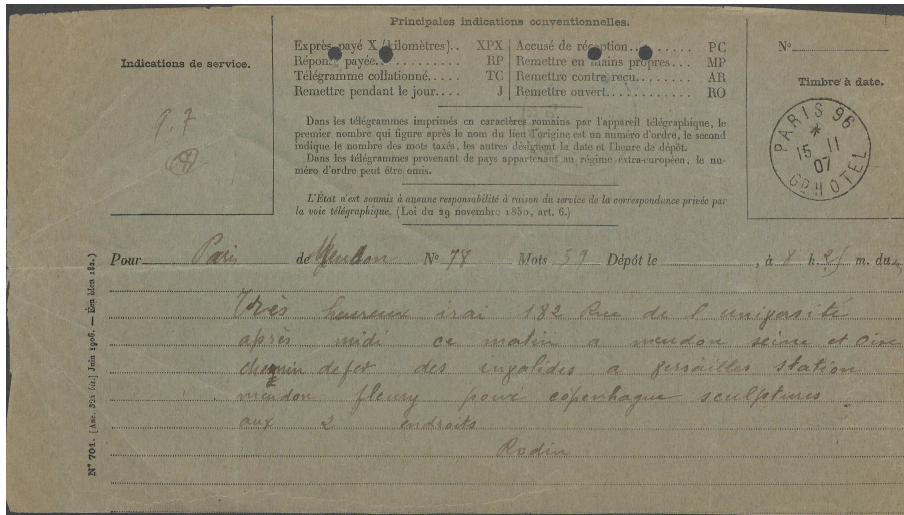 Principales indications conventionnelles.
Exprès payé X (kilomètres).. XPX
Réponse payée.......... RP
Télégramme collationné..... TC
Remettre pendant le jour.... J
Accusé de réception.......... PC
Remettre en mains propres... MP
Remettre contre reçu........ AR
Remettre ouvert............ RO
Indications de service.
9.7
N°
Timbre à date.
PARIS 96
*
15 11
07
GD HOTEL
Dans les télégrammes imprimés en caractères romains par l'appareil télégraphique, le
premier nombre qui figure après le nom du lieu d'origine est un numéro d'ordre, le second
indique le nombre des mots taxés, les autres désignent la date et l'heure de dépôt.
Dans les télégrammes provenant de pays appartenant au régime extra-européen, le nu-
méro d'ordre peut être omis.
L'État n'est soumis à aucune responsabilité à raison du service de la correspondance privée par
la voie télégraphique. (Loi du 29 novembre 1850, art. 6.)
Pour Paris de Meudon N° 78 Mots 39 Dépôt le , à 8 h. 25 m. du
Très heureux irai 182 Rue de l université
après midi ce matin a meudon seine et Oise
chemin de fer des invalides a versailles station
meudon fleury pour copenhague sculptures
aux 2 endroits
Rodin
N° 701. Juin 1906.